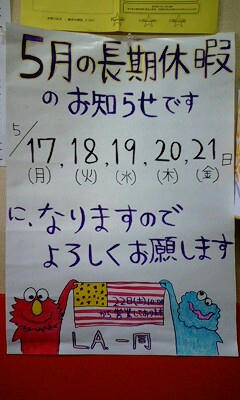 5月の長期休暇
のお知らせです
5/17,18,19,20,21日
(月)(火)(水)(木)(金)
に、なりますので
よろしくお願します
22日(土)
から営業
L.A.一同